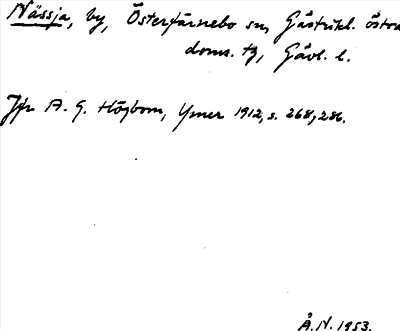 Nässja, by, Österfärnebo sn, Gästrikl. östra
doms. tg, Gävl. l.
Jfr A. G. Högbom, Ymer 1912, s. 268, 286.
Å.N. 1953.